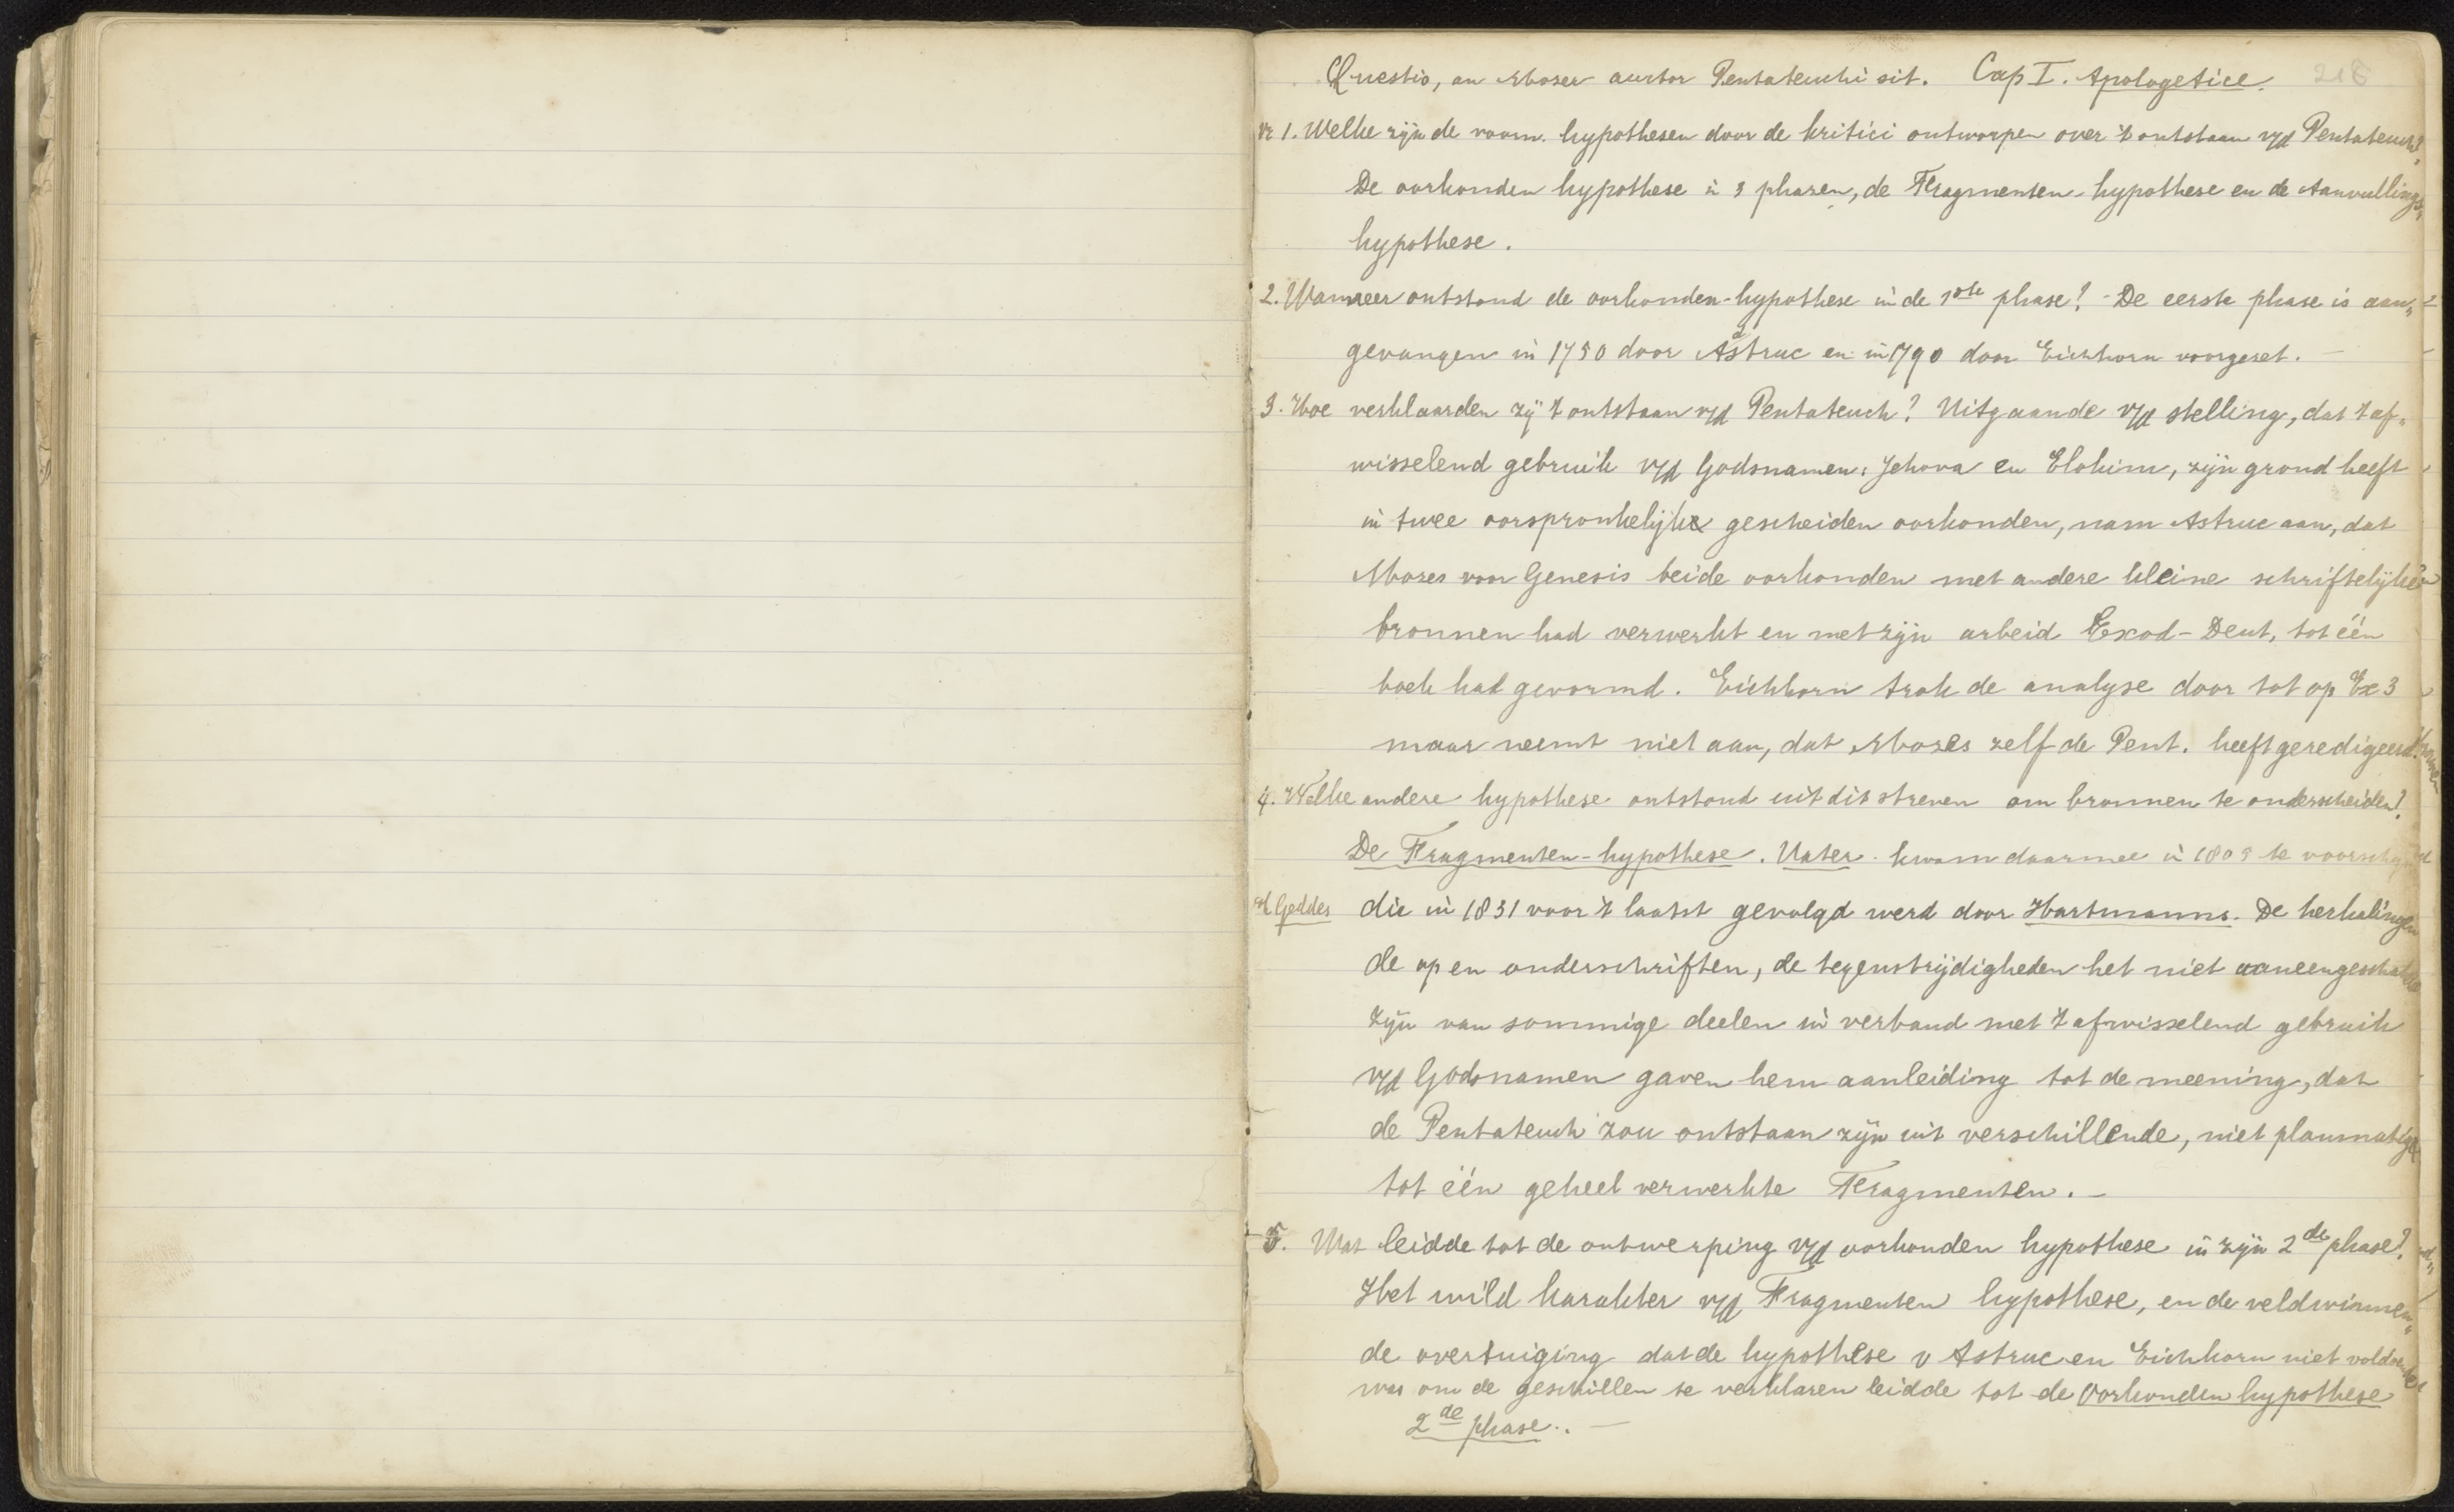 Questio, an Moses auctor Pentateuchi sit. Cap I. Apologetice. 218
Vr 1. Welke zijn de voorn. hypothesen door de kritici ontworpen over 't ontstaan v/d Pentateuch?
De oorkonden hypothese in 3 phasen, de Fragmenten-hypothese en de Aanvullings„
hypothese.
2. Wanneer ontstond de oorkonden-hypothese in de 1ste phase? - De eerste phase is aan„
gevangen in 1750 door Astruc en in 1790 door Eichhorn voorgezet. —
3. Hoe verklaarden zij 't ontstaan v/d Pentateuch? Uitgaande v/d stelling, dat 't af„
wisselend gebruik v/d Godsnamen: Jehova en Elohim, zijn grond heeft
in twee oorspronkelijke gescheiden oorkonden, nam Astruc aan, dat
Mozes voor Genesis beide oorkonden met andere kleine schriftelijke
bronnen had verwerkt en met zijn arbeid Exod - Deut, tot één
boek had gevormd. Eichhorn trok de analyse door tot op Ex 3
maar neemt niet aan, dat Mozes zelf de Pent. heeft geredigeerd.
4. Welke andere hypothese ontstond uit dit streven om bronnen te onderscheiden?
De Fragmenten-hypothese. Vater kwam daarmee in 1805 te voorschijn
Geddes die in 1831 voor 't laatst gevolgd werd door Hartmanns. De herhalingen
de op en onderschriften, de tegenstrijdigheden het niet aaneengeschakeld
zijn van sommige deelen in verband met 't afwisselend gebruik
v/d Godsnamen gaven hem aanleiding tot de meening, dat
de Pentateuch zou ontstaan zijn uit verschillende, niet planmatige
tot één geheel verwerkte Fragmenten. —
5. Wat leidde tot de ontwerping v/d oorkonden hypothese in zijn 2de phase?
Het wild karakter v/d Fragmenten hypothese, en de veldwinnen„
de overtuiging dat de hypothese v Astruc en Eichhorn niet voldoende
was om de geschillen te verklaren leidde tot de Oorkonden hypothese
2de phase. —